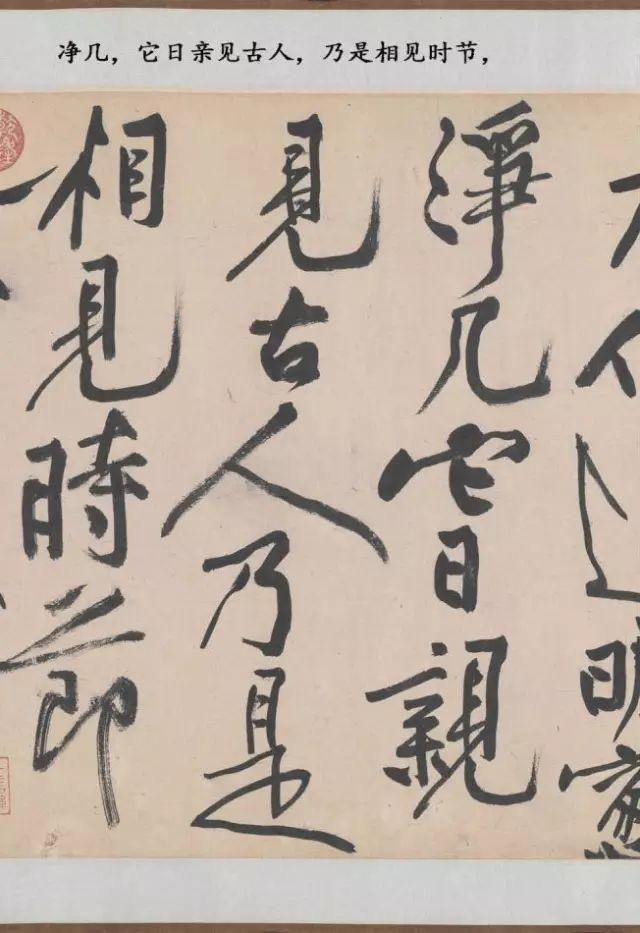 净几，它日亲见古人，乃是相见时节，
明窻
淨几它日親
見古人乃是
相見時節